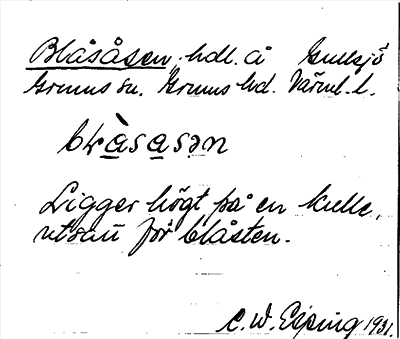 Blåsåsen, hdl. å Gullsjö
Grums sn. Grums hd. Värml. l.
blàsasən
Ligger högt på en kulle,
utsatt för blåsten.
C. W. Esping 1931.